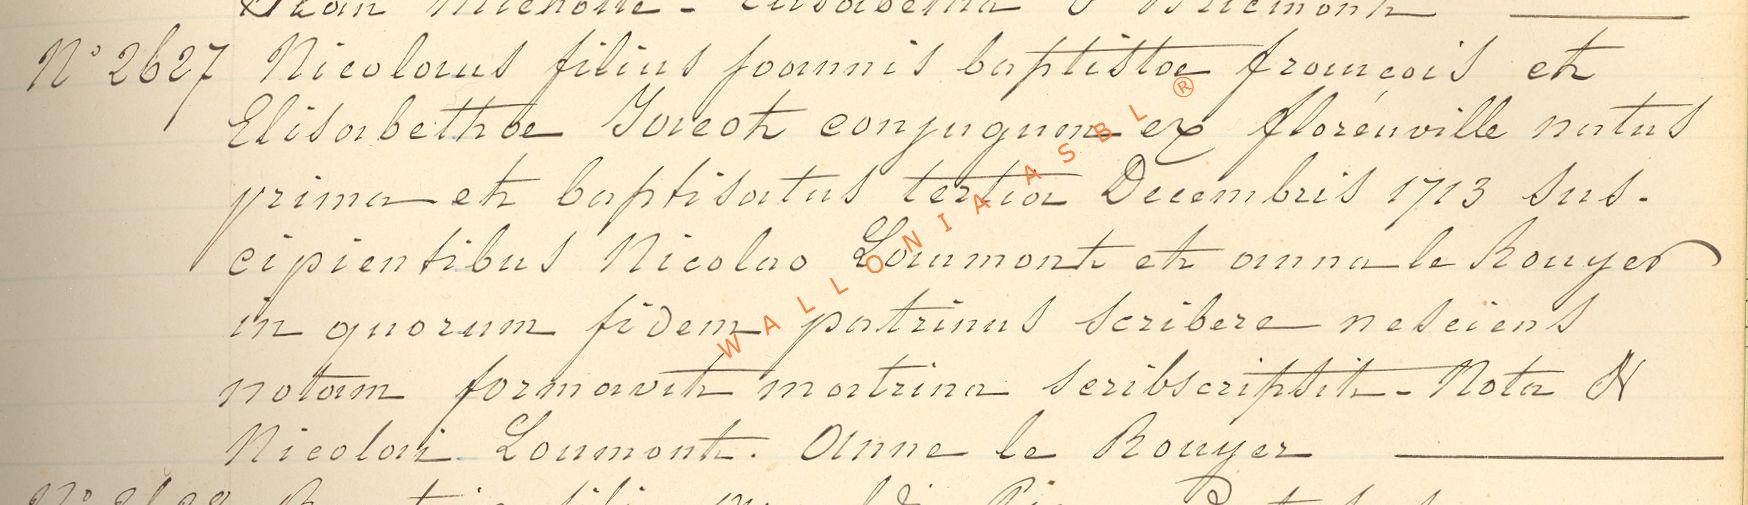 Jean Michotte - Elisabetha
N° 2627 Nicolaus filius Joannis baptistae françois et
Elisabethae Jacot conjugum ex florenville natus
prima et baptisatus tertia Decembris 1713 sus-
cipientibus Nicolao Laumont et anna le Rouyer
in quorum fidem patrinus scribere nesciens
notam formavit matrina scribscripsit - Nota N
Nicolai Loumont. Anne le Rouyer
WALLONIA ASBL ®